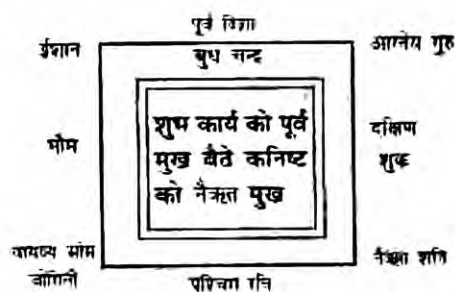 पूर्व दिशा
ईशान
बुध चन्द्र
आग्नेय गुरु
भौम
शुभ कार्य को पूर्व
मुख बैठे कनिष्ट
को नैऋत मुख
दक्षिण
शुक्र
वायव्य सोम
जोगिनी
पश्चिम रवि
नैऋत्य शनि